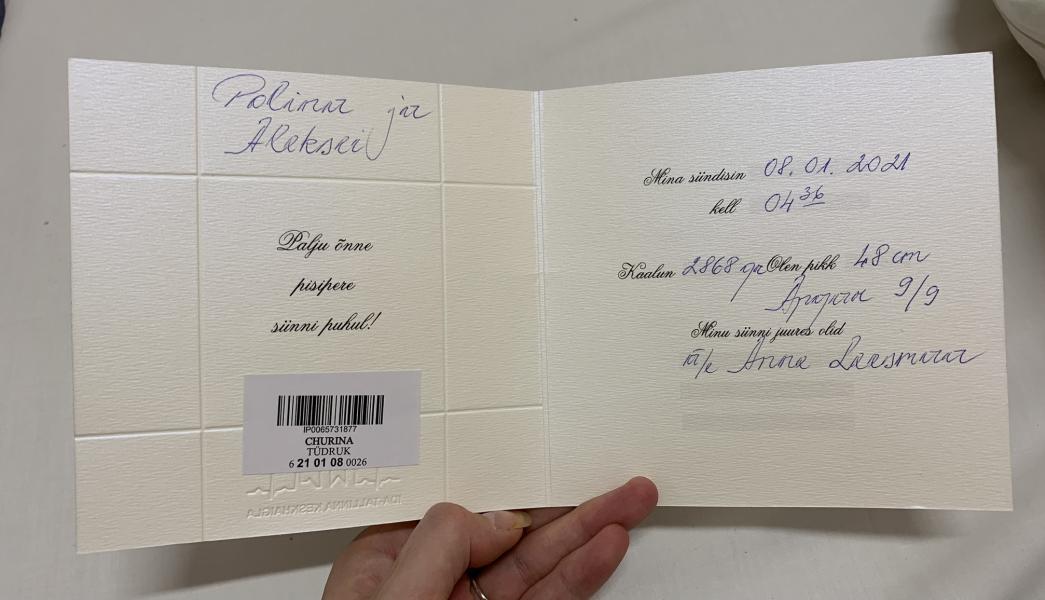 Polina ja
Aleksei
Palju õnne
pisipere
sünni puhul!
IP0065731877
CHURINA
TÜDRUK
6 21 01 08 0026
IDA-TALLINNA KESKHAIGLA
Mina sündisin 08.01.2021
kell 04 36
Kaalun 2868 gr Olen pikk 48 cm
Apgari 9/9
Minu sünni juures olid
ä/e Anna Laasmaa